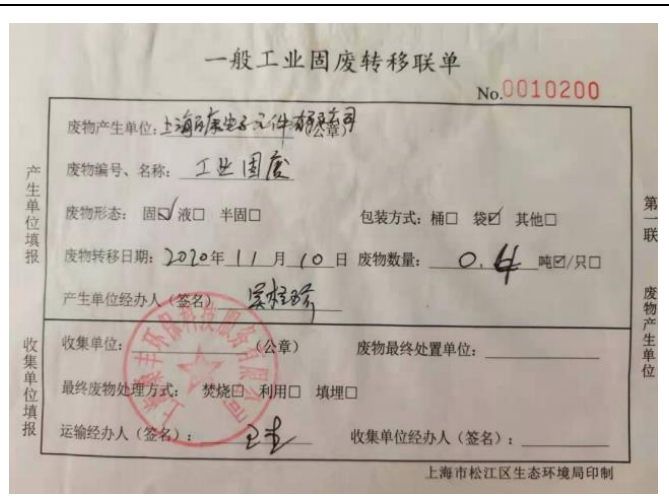 一般工业固废转移联单
No.0010200
产生单位填报
废物产生单位:上海 电子元件有限公司(公章)
废物编号、名称: 工业固废
废物形态: 固☑ 液□ 半固□ 包装方式:桶□ 袋☑ 其他□
废物转移日期: 2020年 11 月 10 日 废物数量: 0.4 吨☑/只□
产生单位经办人(签名)
收集单位填报
收集单位: (公章) 废物最终处置单位:
最终废物处理方式: 焚烧□ 利用□ 填埋□
运输经办人(签名): 收集单位经办人(签名):
第一联 废物产生单位
上海市松江区生态环境局印制